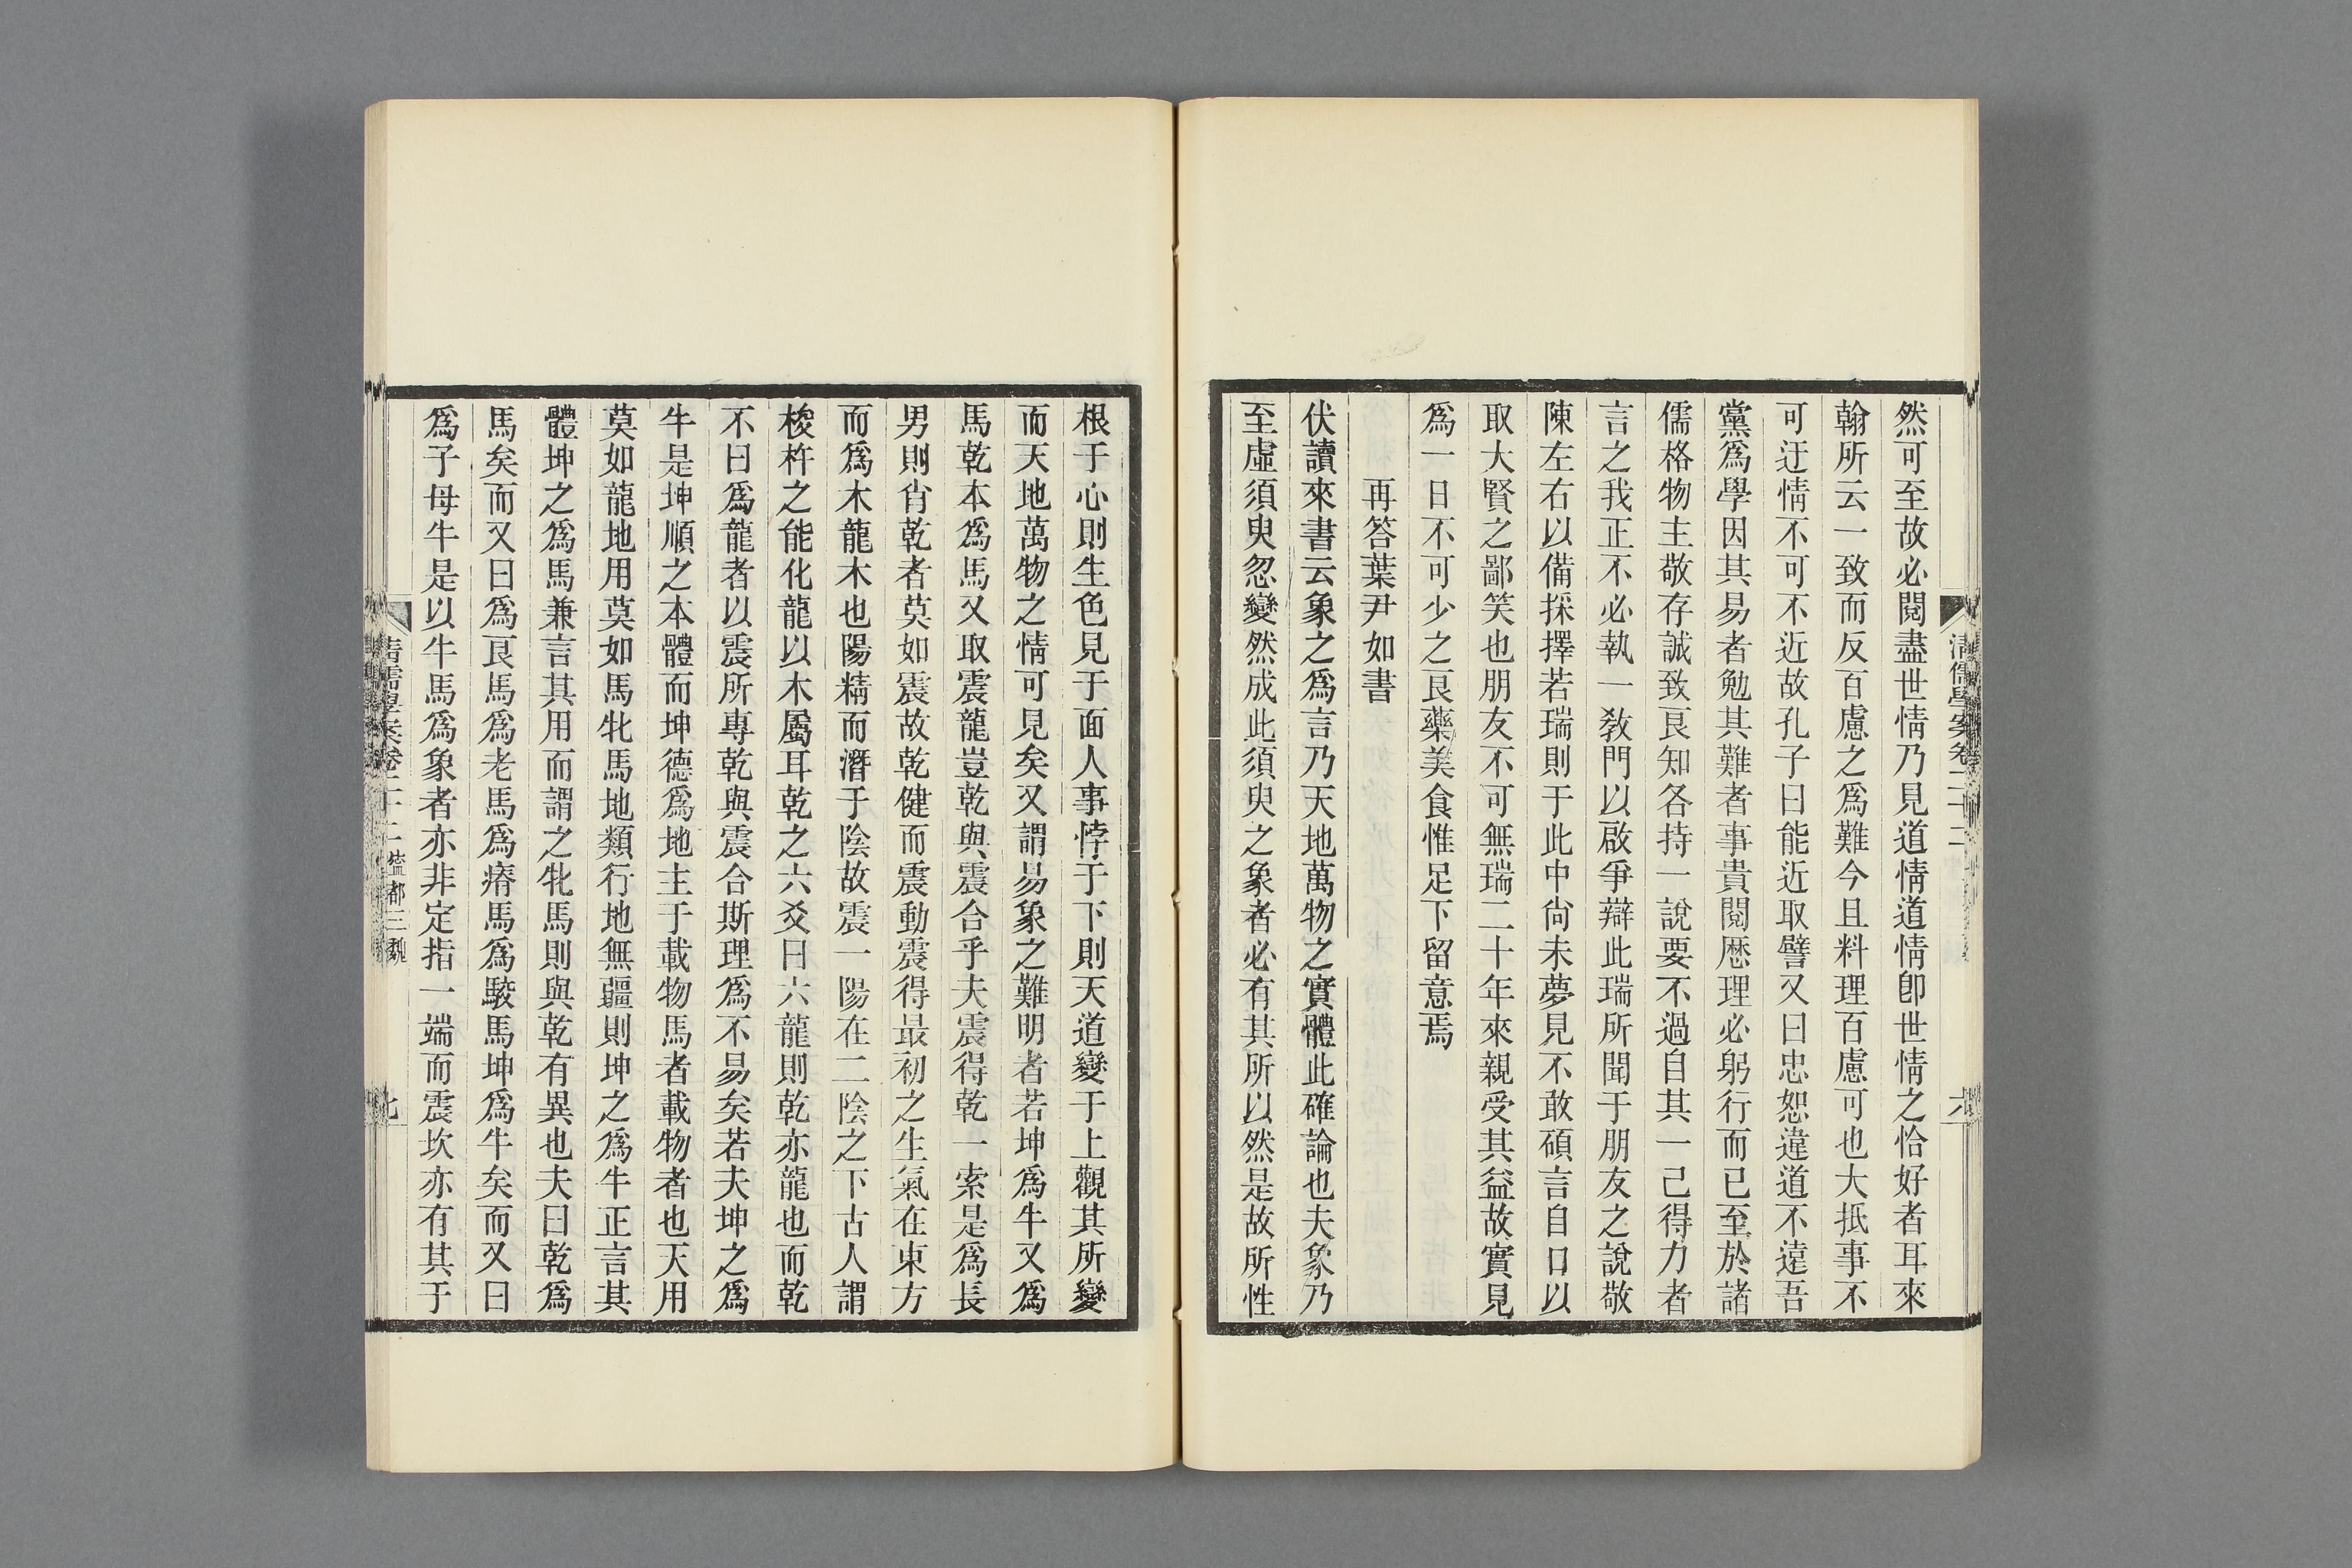 然可至故必閱盡世情乃見道情道情卽世情之恰好者耳來
翰所云一致而反百慮之爲難今且料理百慮可也大抵事不
可迂情不可不近故孔子曰能近取譬又曰忠恕違道不遠吾
黨爲學因其易者勉其難者事貴閱歷理必躬行而已至於諸
儒格物主敬存誠致良知各持一說要不過自其一己得力者
言之我正不必執一敎門以啟爭辯此瑞所聞于朋友之說敬
陳左右以備採擇若瑞則于此中尙未夢見不敢碩言自口以
取大賢之鄙笑也朋友不可無瑞二十年來親受其益故實見
爲一日不可少之良藥美食惟足下留意焉
再答葉尹如書
伏讀來書云象之爲言乃天地萬物之實體此確論也夫象乃
至虛須臾忽變然成此須臾之象者必有其所以然是故所性
清儒學案卷二十二
六
根于心則生色見于面人事悖于下則天道變于上觀其所變
而天地萬物之情可見矣又謂易象之難明者若坤爲牛又爲
馬乾本爲馬又取震龍豈乾與震合乎夫震得乾一索是爲長
男則肖乾者莫如震故乾健而震動震得最初之生氣在東方
而爲木龍木也陽精而潛于陰故震一陽在二陰之下古人謂
梭杵之能化龍以木屬耳乾之六爻曰六龍則乾亦龍也而乾
不曰爲龍者以震所專乾與震合斯理爲不易矣若夫坤之爲
牛是坤順之本體而坤德爲地主于載物馬者載物者也天用
莫如龍地用莫如馬牝馬地類行地無疆則坤之爲牛正言其
體坤之爲馬兼言其用而謂之牝馬則與乾有異也夫曰乾爲
馬矣而又曰爲良馬爲老馬爲瘠馬爲駁馬坤爲牛矣而又曰
爲子母牛是以牛馬爲象者亦非定指一端而震坎亦有其于
清儒學案卷二十二 寧都三魏
七